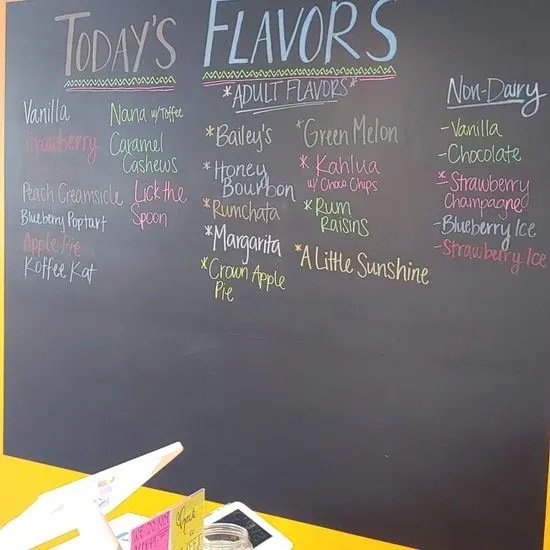 TODAY'S FLAVORS
Vanilla
Strawberry
Peach Creamsicle
Blueberry Poptart
Apple Pie
Koffee Kat
Nana w/Toffee
Caramel
Cashews
Lick the
Spoon
*ADULT FLAVORS*
*Bailey's
*Honey
Bourbon
*Rumchata
*Margarita
*Crown Apple
Pie
*Green Melon
*Kahlua
w/ Choco Chips
*Rum
Raisins
*A Little Sunshine
Non-Dairy
-Vanilla
-Chocolate
*Strawberry
Champagne
-Blueberry Ice
-Strawberry Ice
WE DO NOT